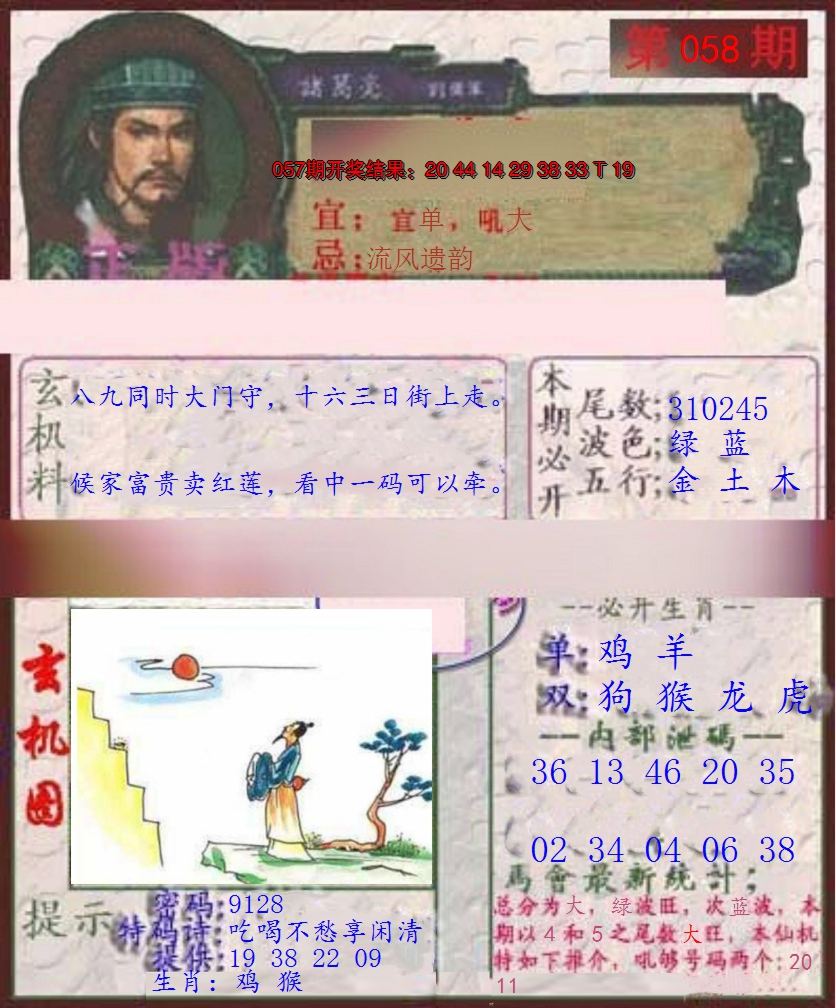 第 058 期
諸葛亮
057期开奖结果：20 44 14 29 38 33 T 19
宜：宜单，吼大
忌：流风遗韵
正版
玄机料
八九同时大门守，十六三日街上走。
候家富贵卖红莲，看中一码可以牵。
本期必开
尾数；310245
波色；绿 蓝
五行；金 土 木
玄机图
--必开生肖--
单：鸡 羊
双：狗 猴 龙 虎
一一内部泄碼一一
36 13 46 20 35
02 34 04 06 38
馬會最新统計；
总分为大，绿波旺，次蓝波，本
期以４和５之尾数大旺，本仙机
特如下推介，吼够号码两个：20
11
提示
密码:9128
特码诗:吃喝不愁享闲清
提供:19 38 22 09
生肖：鸡 猴